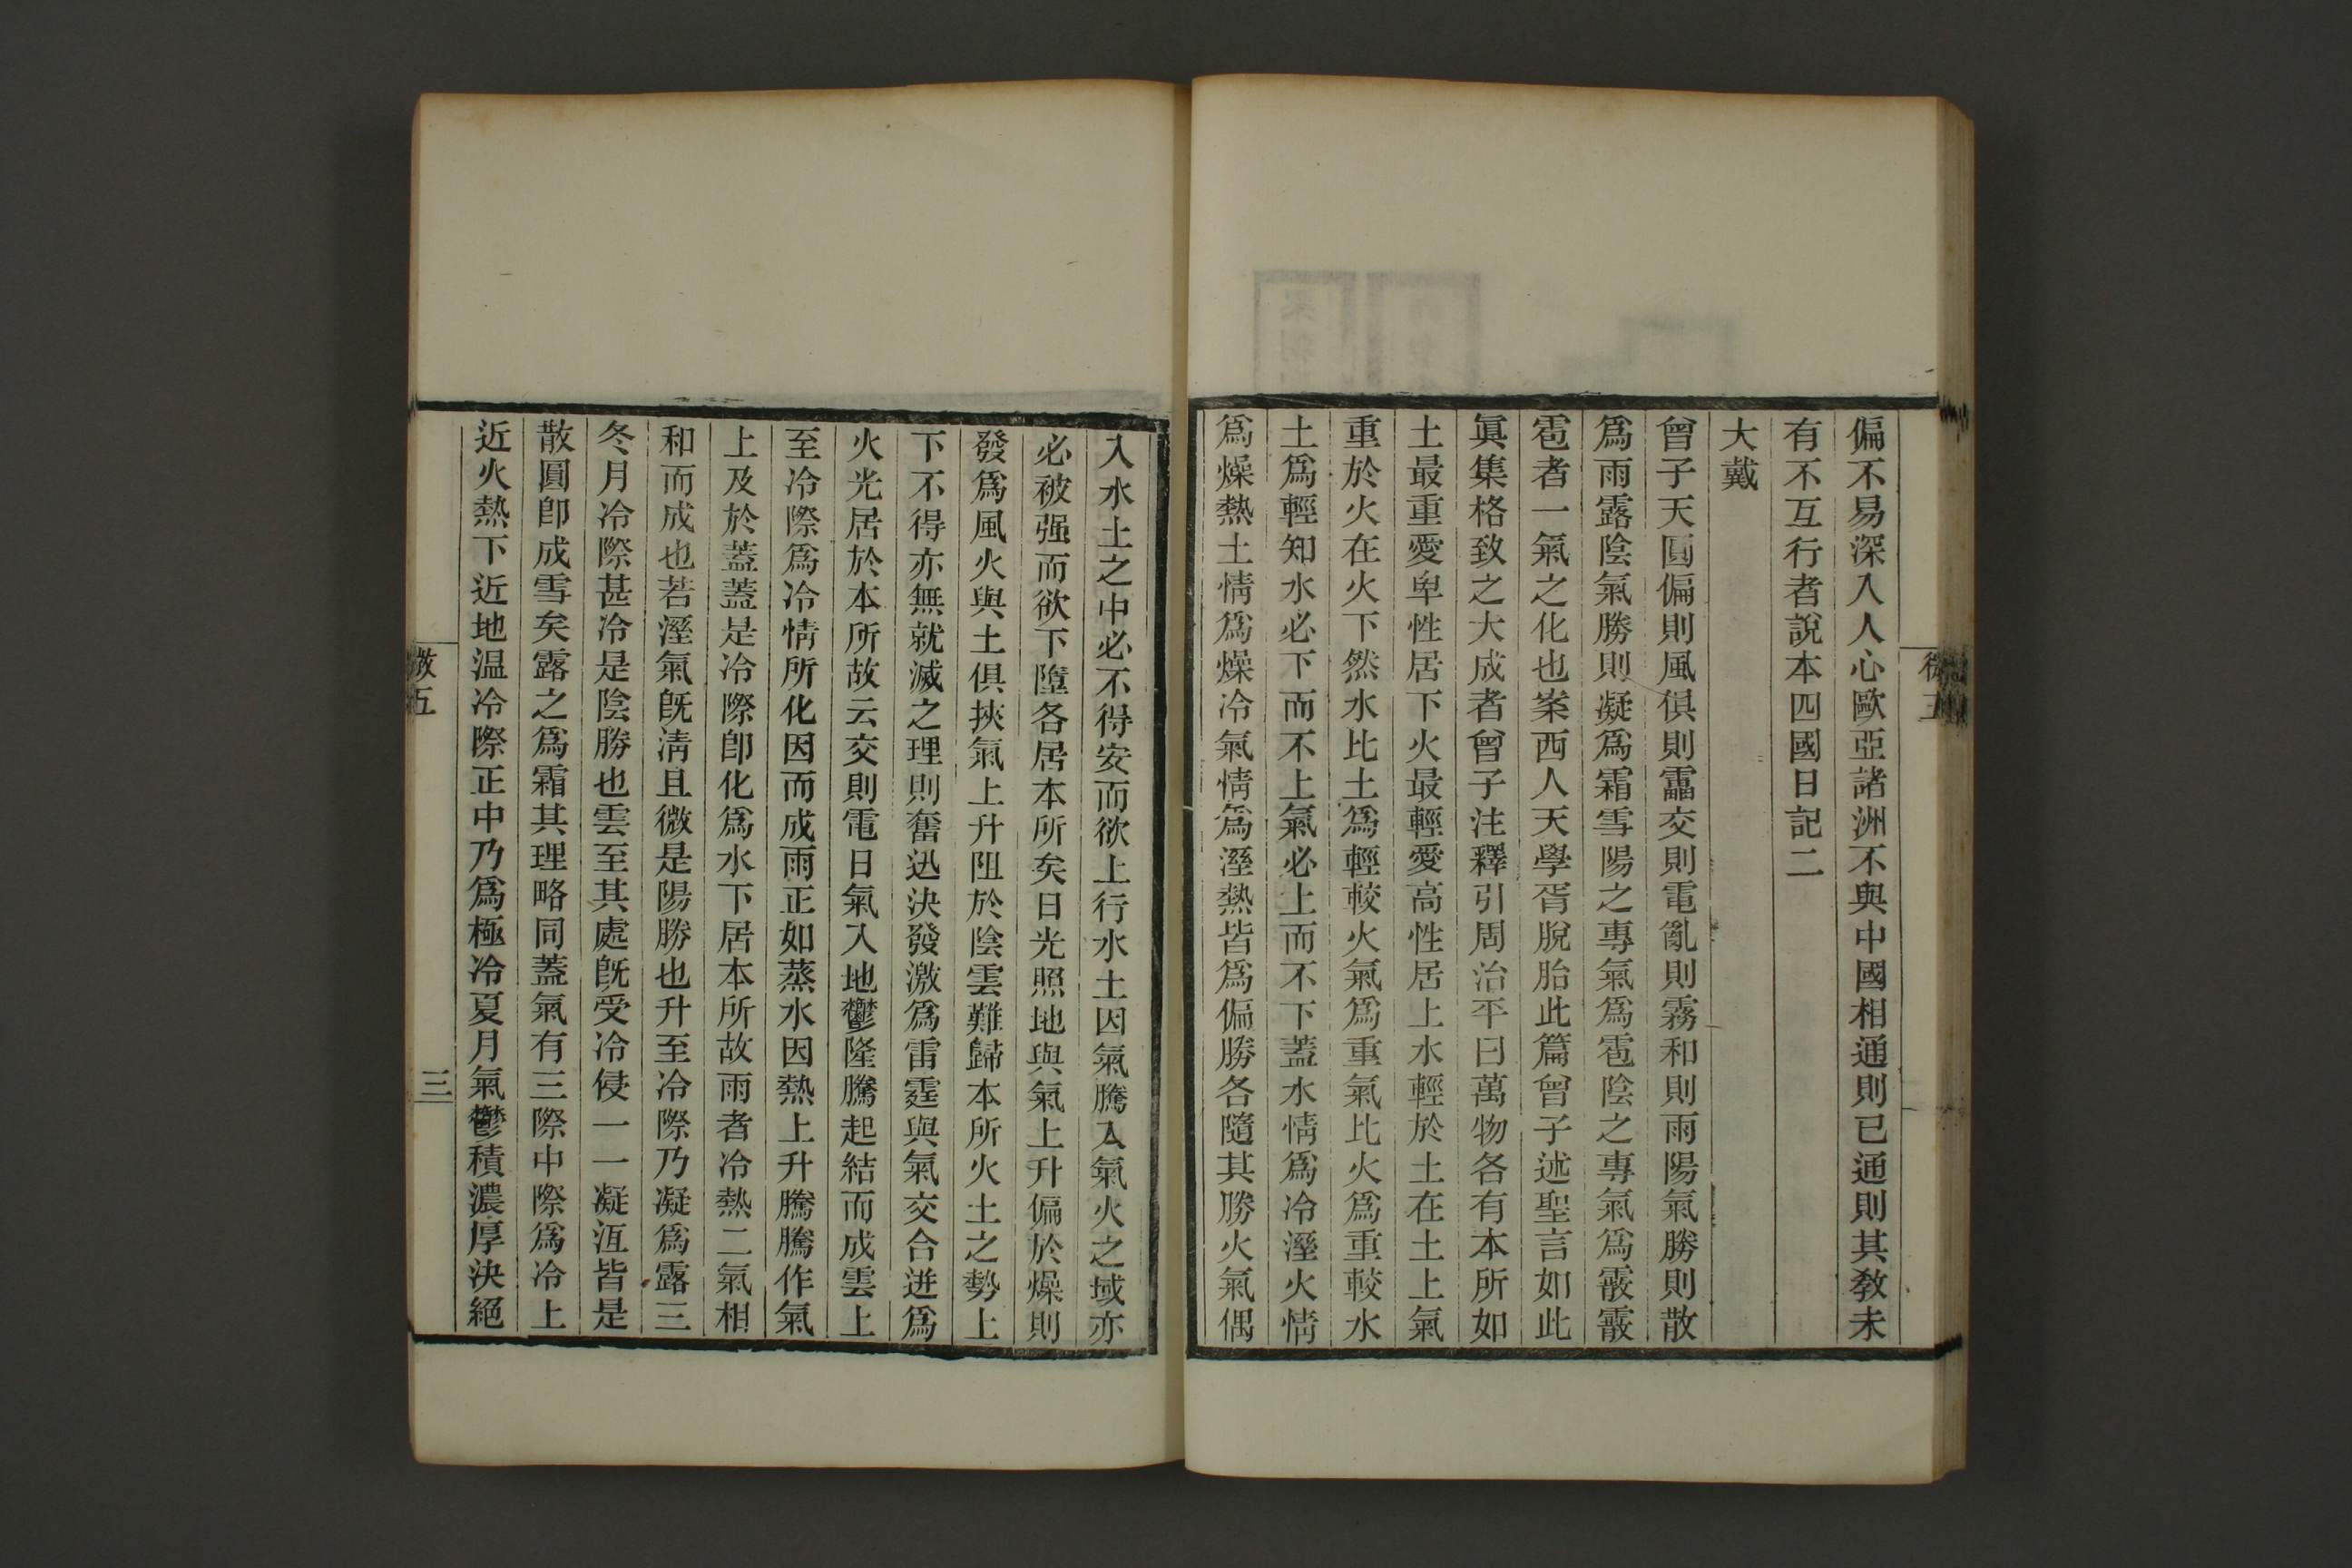 偏不易深入人心歐亞諸洲不與中國相通則已通則其敎未
有不互行者說本四國日記二
大戴
曾子天圓偏則風俱則靁交則電亂則霧和則雨陽氣勝則散
爲雨露陰氣勝則凝爲霜雪陽之專氣爲雹陰之專氣爲霰霰
雹者一氣之化也案西人天學胥脫胎此篇曾子述聖言如此
眞集格致之大成者曾子注釋引周治平曰萬物各有本所如
土最重愛卑性居下火最輕愛高性居上水輕於土在土上氣
重於火在火下然水比土爲輕較火氣爲重氣比火爲重較水
土爲輕知水必下而不上氣必上而不下蓋水情爲冷溼火情
爲燥熱土情爲燥冷氣情爲溼熱皆爲偏勝各隨其勝火氣偶
入水土之中必不得安而欲上行水土因氣騰入氣火之域亦
必被强而欲下墮各居本所矣日光照地與氣上升偏於燥則
發爲風火與土俱挾氣上升阻於陰雲難歸本所火土之勢上
下不得亦無就滅之理則奮迅決發激爲雷霆與氣交合迸爲
火光居於本所故云交則電日氣入地鬱隆騰起結而成雲上
至冷際爲冷情所化因而成雨正如蒸水因熱上升騰騰作氣
上及於蓋蓋是冷際卽化爲水下居本所故雨者冷熱二氣相
和而成也若溼氣旣淸且微是陽勝也升至冷際乃凝爲露三
冬月冷際甚冷是陰勝也雲至其處旣受冷侵一一凝沍皆是
散圓卽成雪矣露之爲霜其理略同蓋氣有三際中際爲冷上
近火熱下近地温冷際正中乃爲極冷夏月氣鬱積濃厚決絕
微五
三